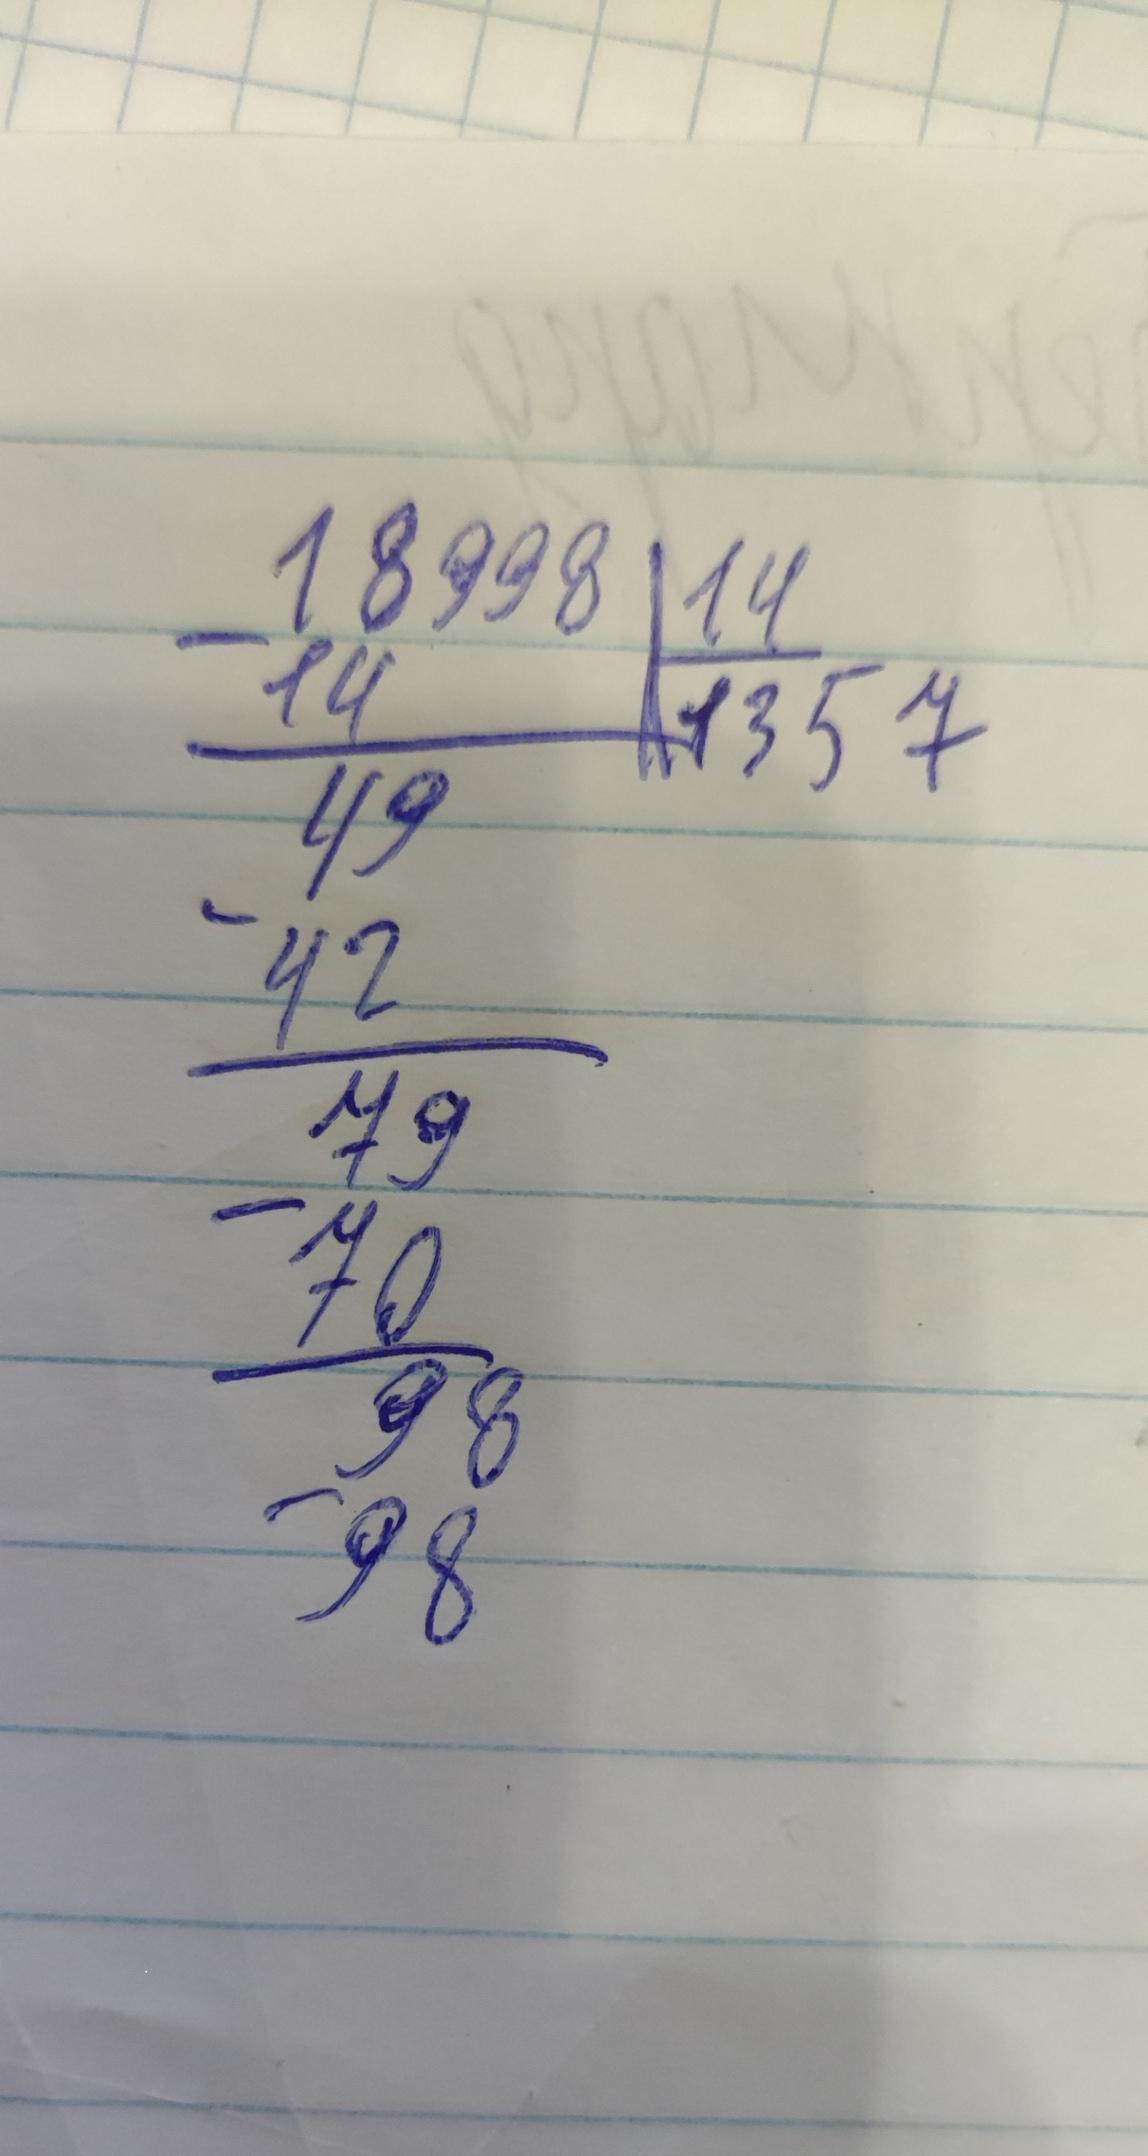 18998 14
- 14 1357
49
- 42
79
- 70
98
- 98